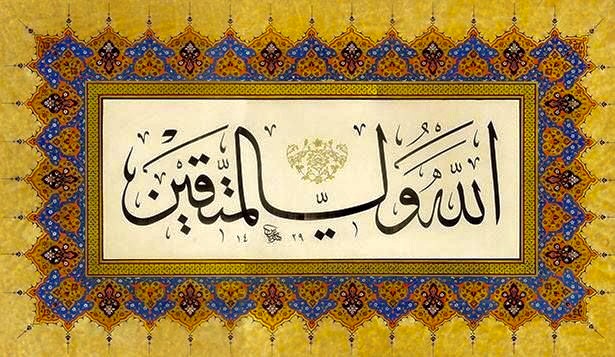 اللّٰه ولیّ المتّقین
١٤ ٢٩